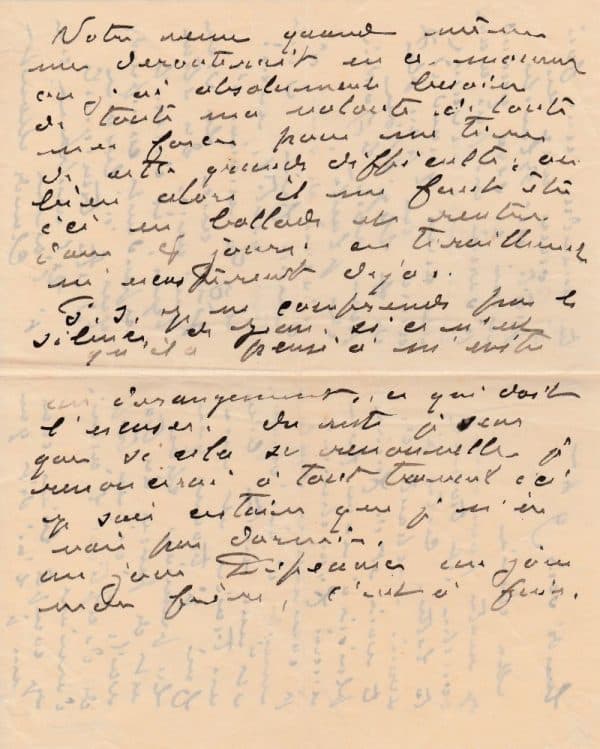 Votre venue quand même
me derouterait en ce moment
ou j'ai absolument besoin
de toute ma volonté et toute
mes forces pour me tirer
de cette grande difficulté, ou
bien alors il me faut
ici en ballade et rentrer
dans 8 jours. ces tiraillements
déjà.
Si, si, je ne comprends pas le
silence de si ce n'est
qu'il a pensé à m'eviter
un derangement, ce qui doit
l'excuser. Du reste je sens
que si cela se renouvelle je
renoncerai à tout travail ici
je suis certain que je n'en
vais pas dormir.
un jour un jour
mon frère, c'est à fuir.